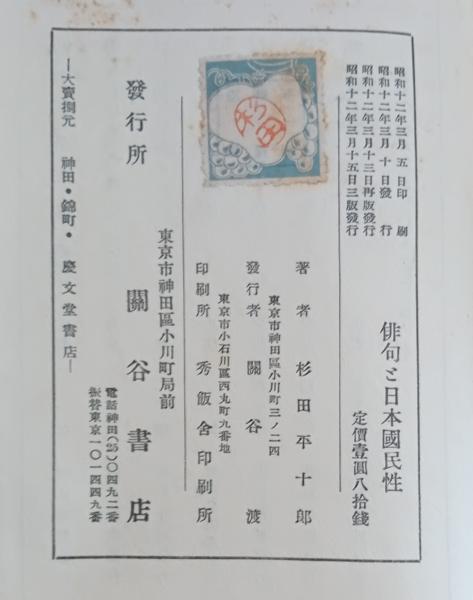 昭和十二年三月五日印刷
昭和十二年三月十日發行
昭和十二年三月十三日再版發行
昭和十二年三月十五日三版發行
俳句と日本國民性
定價壹圓八拾錢
杉田
著者 杉田平十郎
東京市神田區小川町三ノ二四
發行者 關谷渡
東京市小石川區西丸町九番地
印刷所 秀飯舍印刷所
發行所
東京市神田區小川町局前
關谷書店
電話神田(25)〇四九二番
振替東京一〇一四四九番
―大賣捌元 神田・錦町・慶文堂書店―